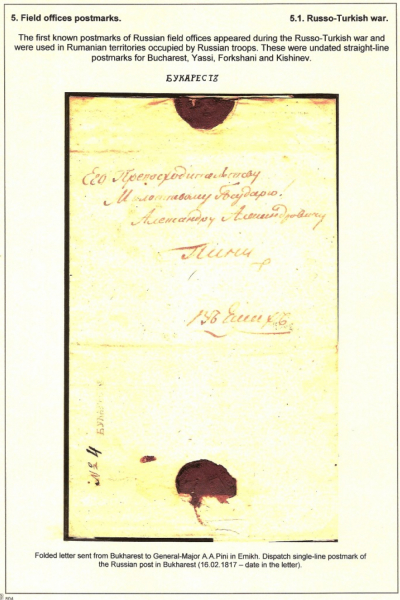 5. Field offices postmarks. 5.1. Russo-Turkish war.
The first known postmarks of Russian field offices appeared during the Russo-Turkish war and
were used in Rumanian territories occupied by Russian troops. These were undated straight-line
postmarks for Bucharest, Yassi, Forkshani and Kishinev.
БУКАРЕСТЪ
Его Превосходительству
Милостивому Государю.
Александру Александровичу
Пини
въ
№ 4
Folded letter sent from Bukharest to General-Major A.A.Pini in Emikh. Dispatch single-line postmark of
the Russian post in Bukharest (16.02.1817 – date in the letter).